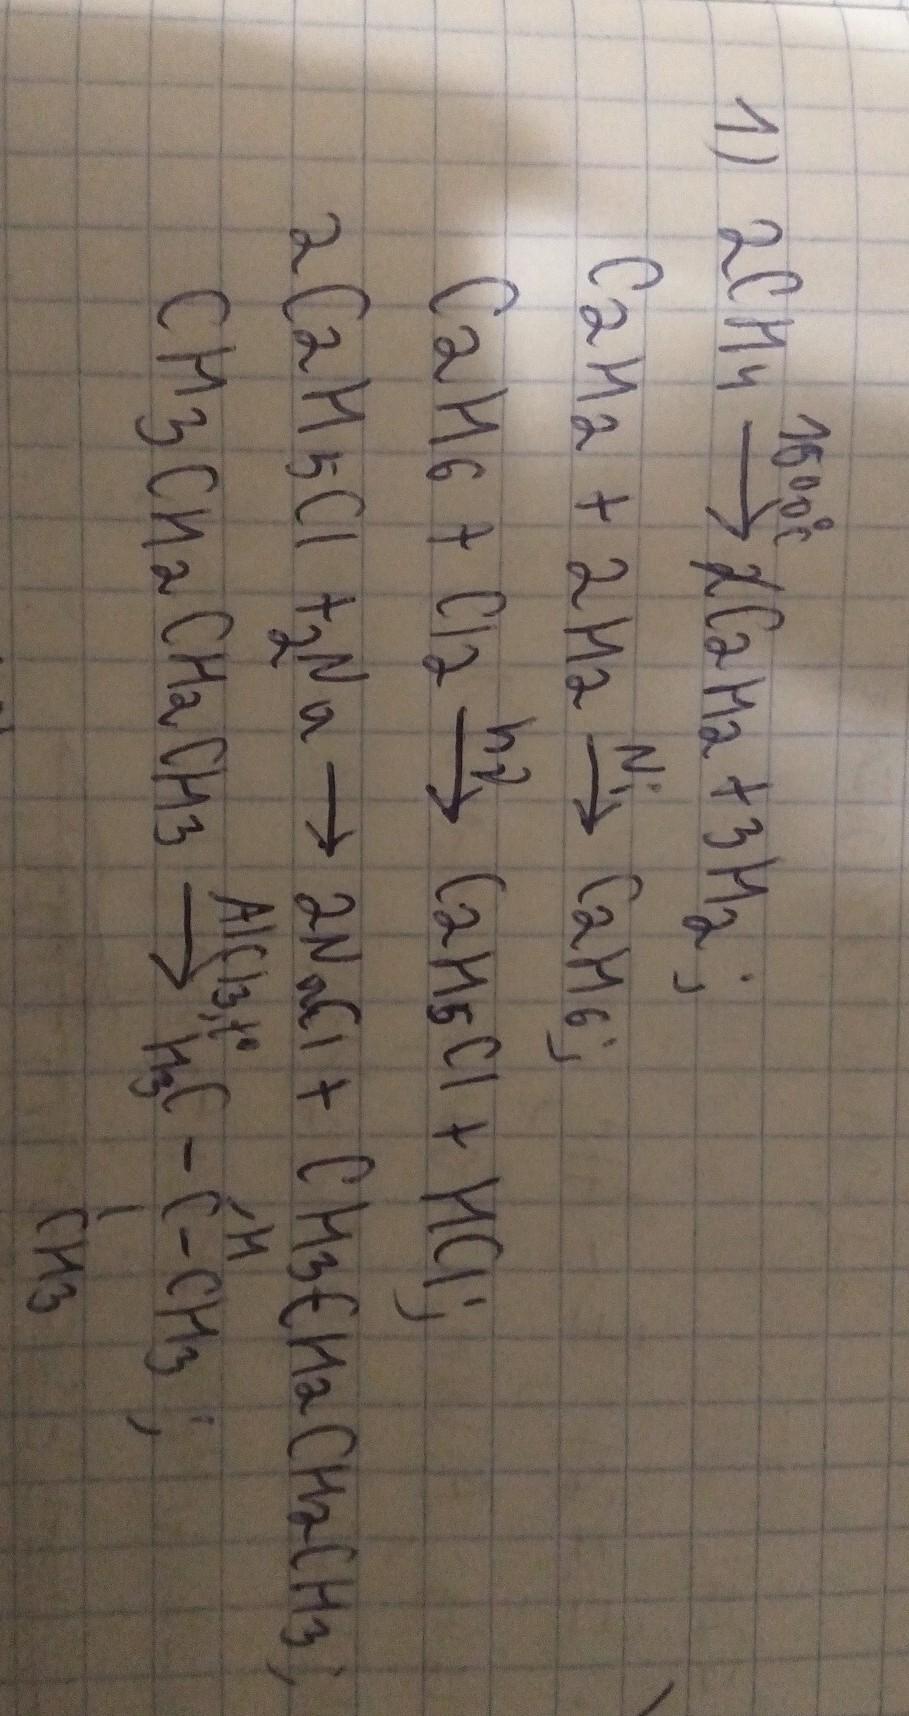 1) 2CH4 → 1500°C C2H2 + 3H2;
C2H2 + 2H2 → Ni C2H6;
C2H6 + Cl2 → hν C2H5Cl + HCl;
2C2H5Cl + 2Na → 2NaCl + CH3CH2CH2CH3;
CH3CH2CH2CH3 → AlCl3, t° H3C - C - CH3;
H
CH3